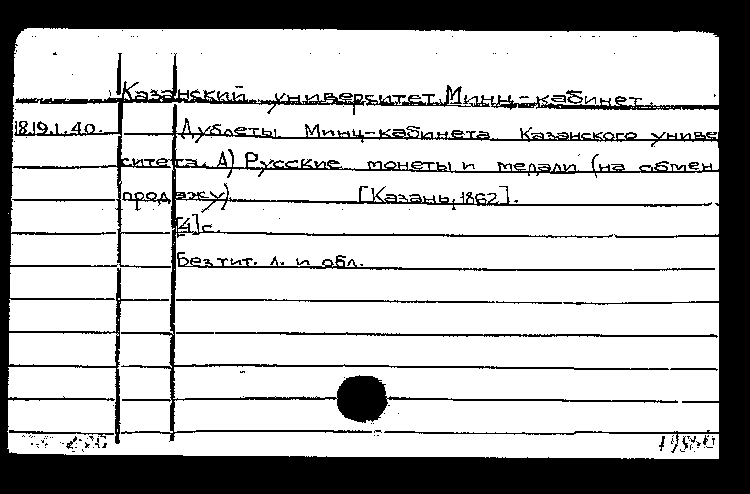 Казанский университет. Минц-кабинет.
18.19.1.40. Дублеты Минц-кабинета Казанского универ
ситета. А) Русские монеты и медали (на обмен
продажу) [Казань, 1862].
[4]с.
Без тит. л. и обл.